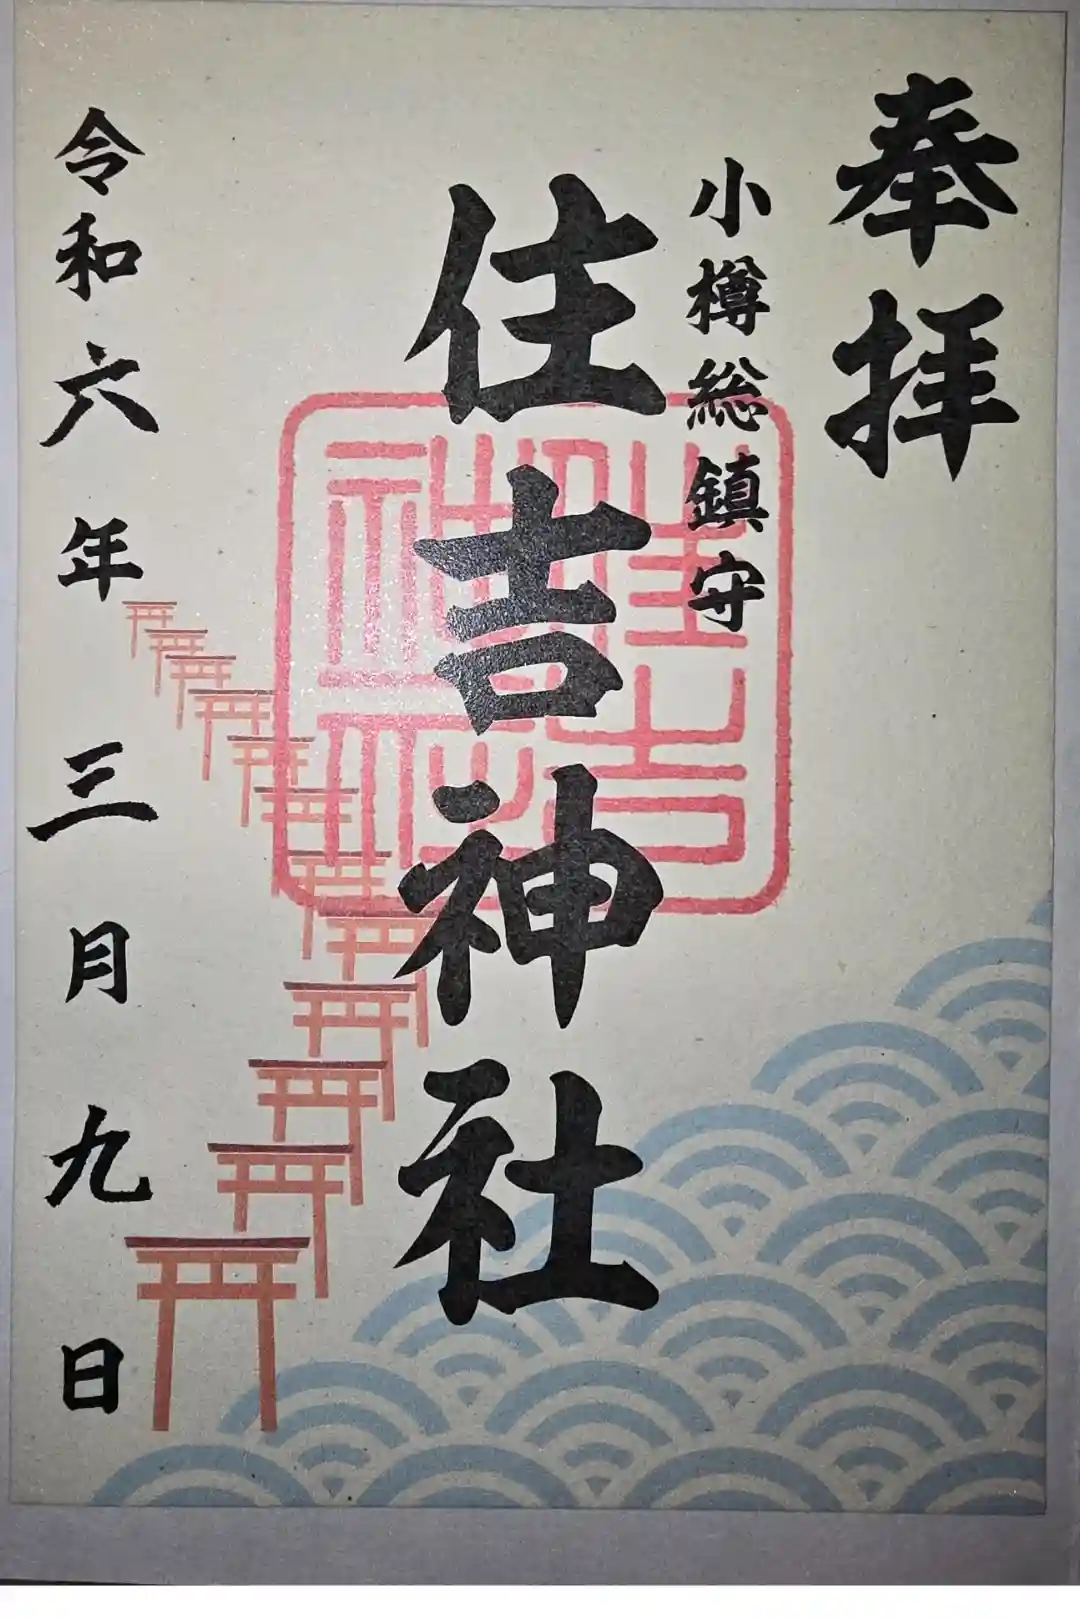 奉拝
小樽総鎮守
住吉神社
令和六年三月九日
住吉
神社